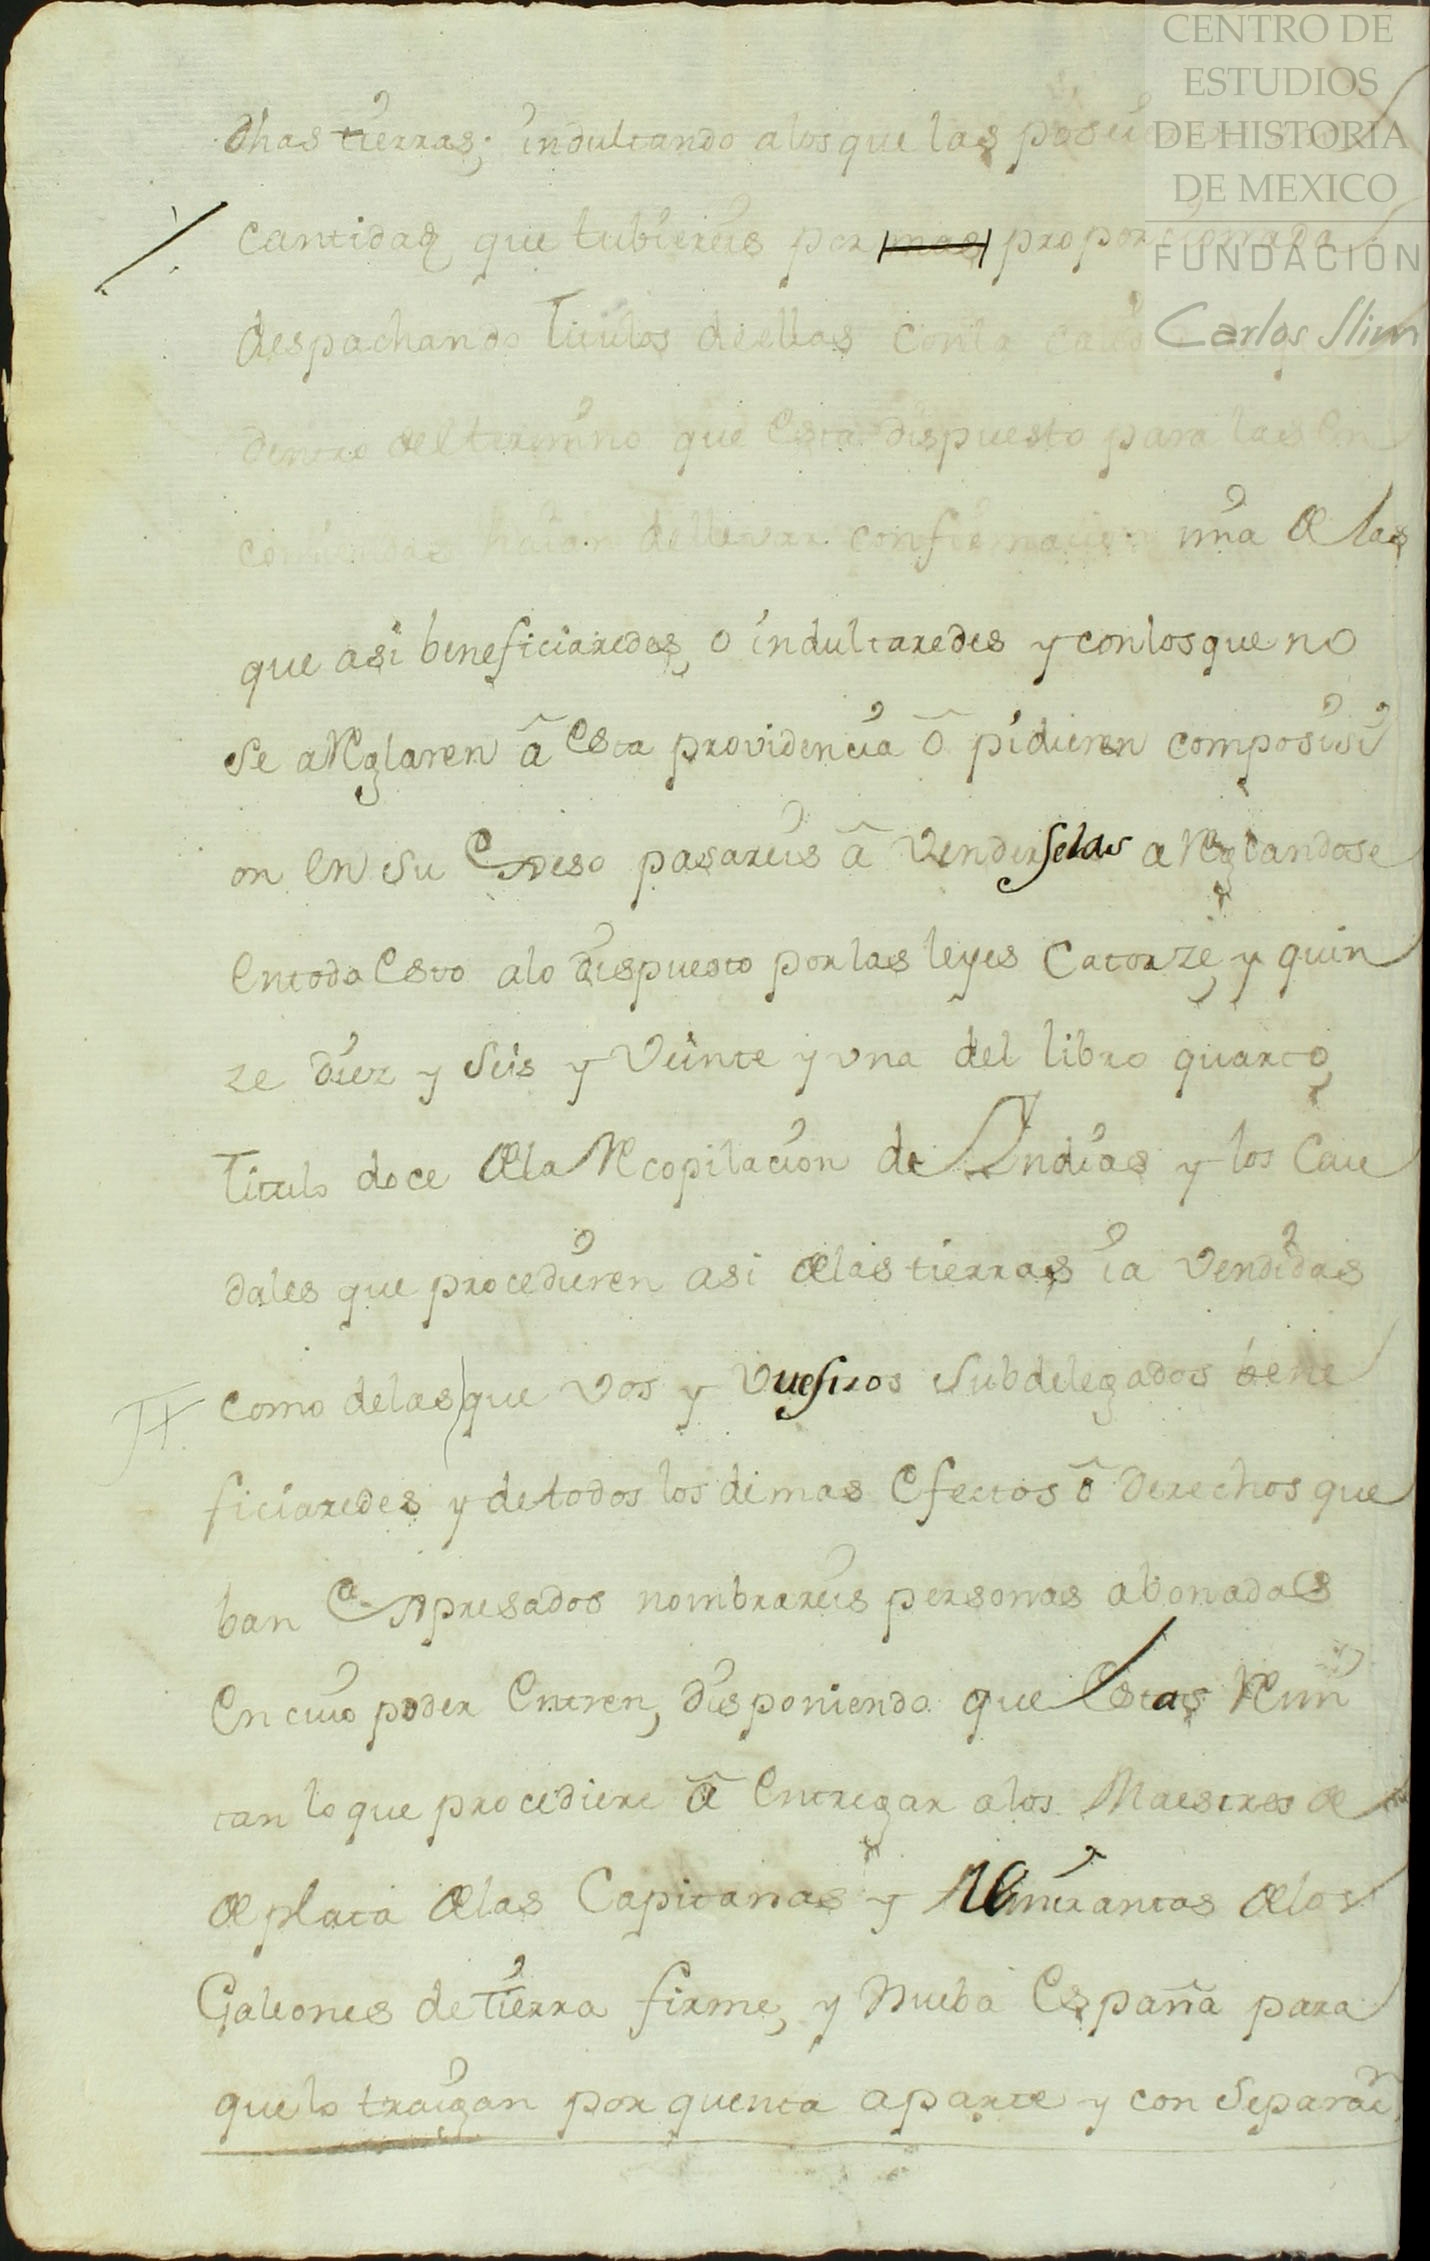 CENTRO DE
ESTUDIOS
DE HISTORIA
DE MEXICO
FUNDACIÓN
Carlos Slim
dhas tierras; indultando alos que las
cantidad que tubiereis por mas proporcionada
despachando Titulos deellas conla
dentro del termino que Esta dispuesto para las En
comiendas haian dellevar confirmacion mia de las
que asi beneficiaredes, o indultaredes y conlos que no
se aReglaren â Esta providencia ô pidieren composisi
on en su Expreso pasareis â venderselas aReglandose
Entodo Esto alo dispuesto por las leyes Catorze, y quin
ze diez y seis y Veinte y vna del libro quarto,
Titulo doce dela Recopilacion de Indias y los Cau
dales que procedieren asi delas tierras ia vendidas
como delas que vos y vuestros subdelegados bene
ficiaredes y de todos los demas Efectos ô derechos que
ban Expresados nombrareis personas abonadas
En cuio poder Entren, disponiendo que Estas Remi
tan lo que procediere â Entregar alos Maestres de
de plata delas Capitanas y Almirantas delos
Galeones de tierra firme, y Nueba España para
que lo traigan por quenta aparte y con separaon